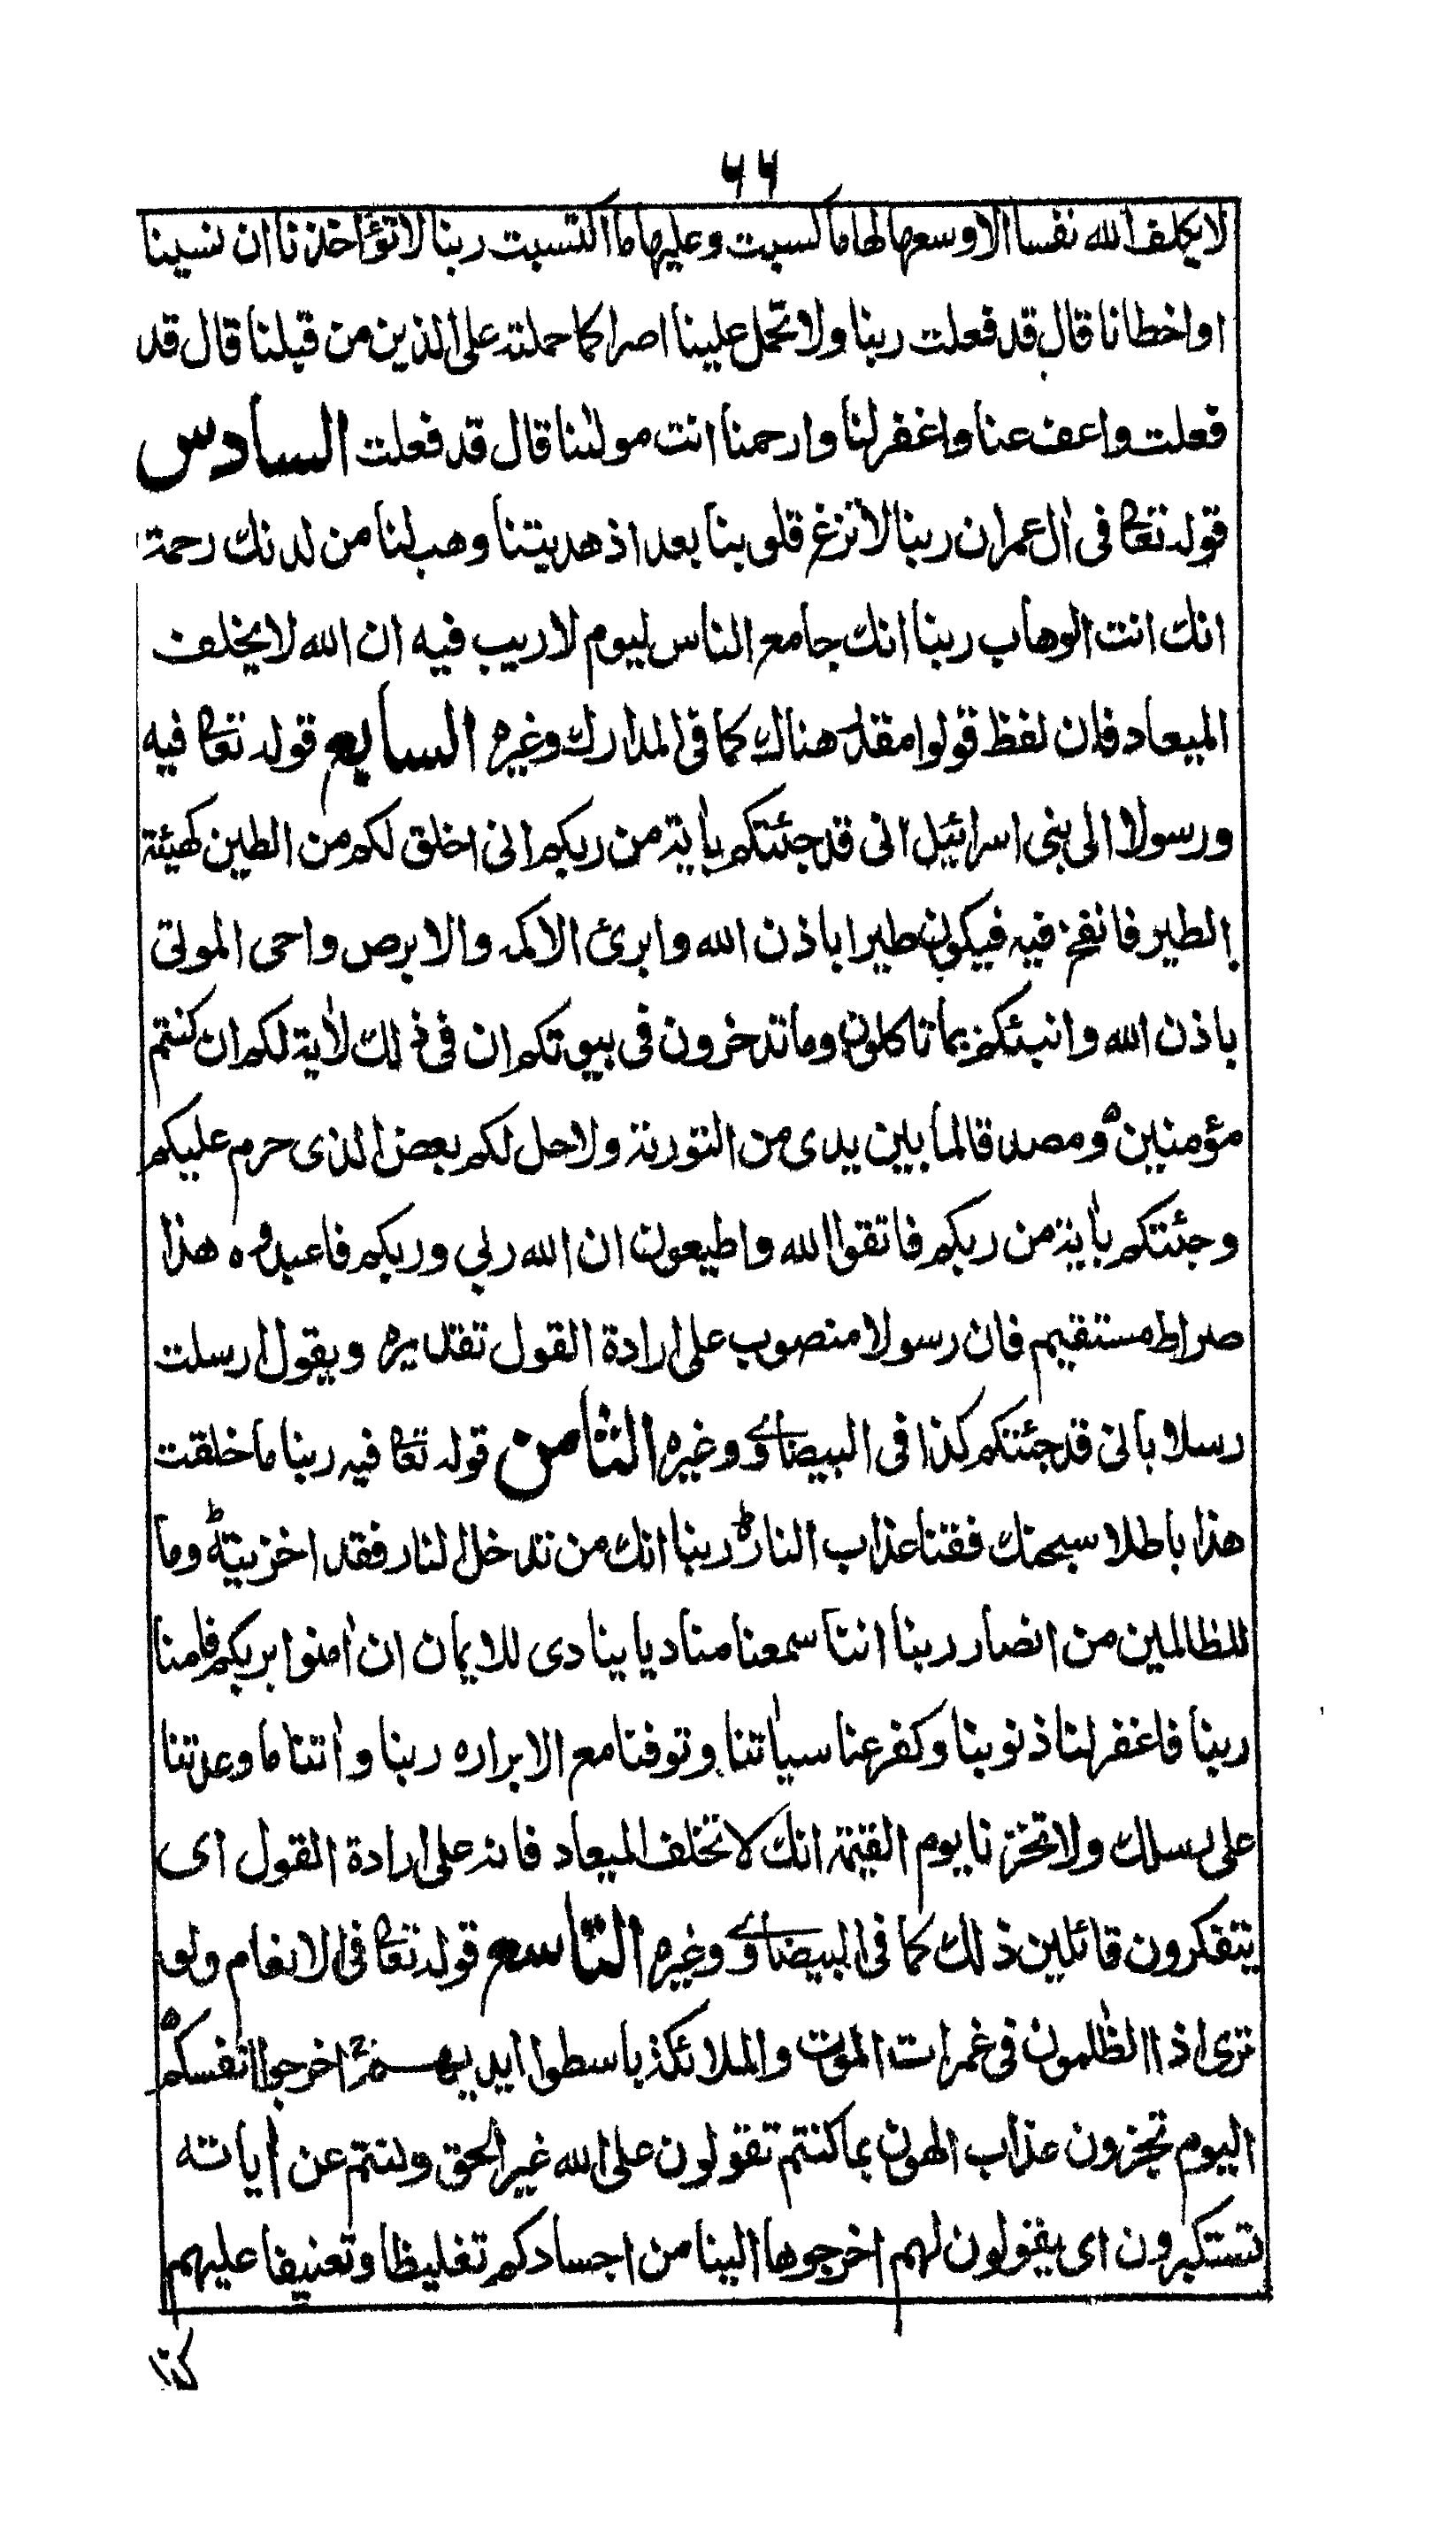 ٦٦
لا يكلف الله نفسا الا وسعها لها ما كسبت وعليها ما اكتسبت ربنا لا تؤاخذنا ان نسينا
او اخطانا قال قد فعلت ربنا ولا تحمل علينا اصرا كما حملته على الذين من قبلنا قال قد
فعلت واعف عنا واغفر لنا وارحمنا انت مولٰنا قال قد فعلت السادس
قوله تعا فى اٰل عمران ربنا لا تزغ قلوبنا بعد اذ هديتنا وهب لنا من لدنك رحمة
انك انت الوهاب ربنا انك جامع الناس ليوم لا ريب فيه ان الله لا يخلف
الميعاد فان لفظ قولوا مقدر هناك كما فى المدارك وغيره السابع قوله تعا فيه
ورسولا الى بنى اسرائيل انى قد جئتكم باٰية من ربكم انى اخلق لكم من الطين كهيئة
الطير فانفخ فيه فيكون طيرا باذن الله وابرئ الاكمه والابرص واحى الموتى
باذن الله وانبئكم بما تاكلون وما تدخرون فى بيوتكم ان فى ذلك لاٰية لكم ان كنتم
مؤمنين ومصدقا لما بين يدى من التورىة ولاحل لكم بعض الذى حرم عليكم
وجئتكم باٰية من ربكم فاتقوا الله واطيعون ان الله ربي وربكم فاعبدوه هذا
صراط مستقيم فان رسولا منصوب على ارادة القول تقديره ويقول ارسلت
رسلا بانى قد جئتكم كذا فى البيضاوے وغيره الثامن قوله تعا فيه ربنا ما خلقت
هذا باطلا سبحنك فقنا عذاب النار ربنا انك من تدخل النار فقد اخزيته وما
للظالمين من انصار ربنا اننا سمعنا مناديا ينادى للايمان ان اٰمنوا بربكم فاٰمنا
ربنا فاغفر لنا ذنوبنا وكفر عنا سياٰتنا وتوفنا مع الابراره ربنا واٰتنا ما وعدتنا
على رسلك ولا تخزنا يوم القيٰمة انك لا تخلف الميعاد فانه على ارادة القول اى
يتفكرون قائلين ذلك كما فى البيضاوے وغيره التاسع قوله تعا فى الانعام ولو
ترى اذ الظٰلمون فى غمرات الموت والملائكة باسطوا ايديهم اخرجوا انفسكم
اليوم تجزون عذاب الهون بما كنتم تقولون على الله غير الحق وكنتم عن اٰياته
تستكبرون اى يقولون لهم اخرجوها الينا من اجسادكم تغليظا وتعنيفا عليهم
كذا